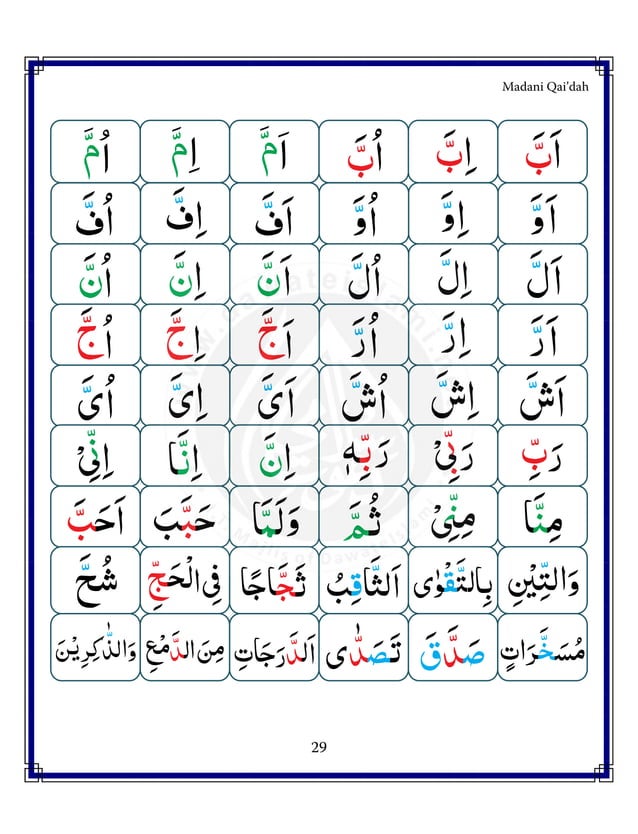 Madani Qai'dah
اَبَّ اِبَّ اُبَّ اَمَّ اِمَّ اُمَّ
اَوَّ اِوَّ اُوَّ اَفَّ اِفَّ اُفَّ
اَلَّ اِلَّ اُلَّ اَنَّ اِنَّ اُنَّ
اَرَّ اِرَّ اُرَّ اَجَّ اِجَّ اُجَّ
اَشَّ اِشَّ اُشَّ اَیَّ اِیَّ اُیَّ
رَبِّ رَبِّیْ رَبِّہٖ اِنَّ اِنَّا اِنِّیْ
مِنَّا مِنِّیْ ثُمَّ وَلَمَّا حَبَّبَ اَحَبَّ
وَالتِّیْنِ بِالتَّقْوٰی اَلثَّاقِبُ ثَجَّاجًا فِی الْحَجِّ شُحَّ
مُسَخَّرَاتٍ صَدَّقَ تَصَدّٰی اَلدَّرَجَاتِ مِنَ الدَّمْعِ وَالذّٰکِرِیْنَ
29